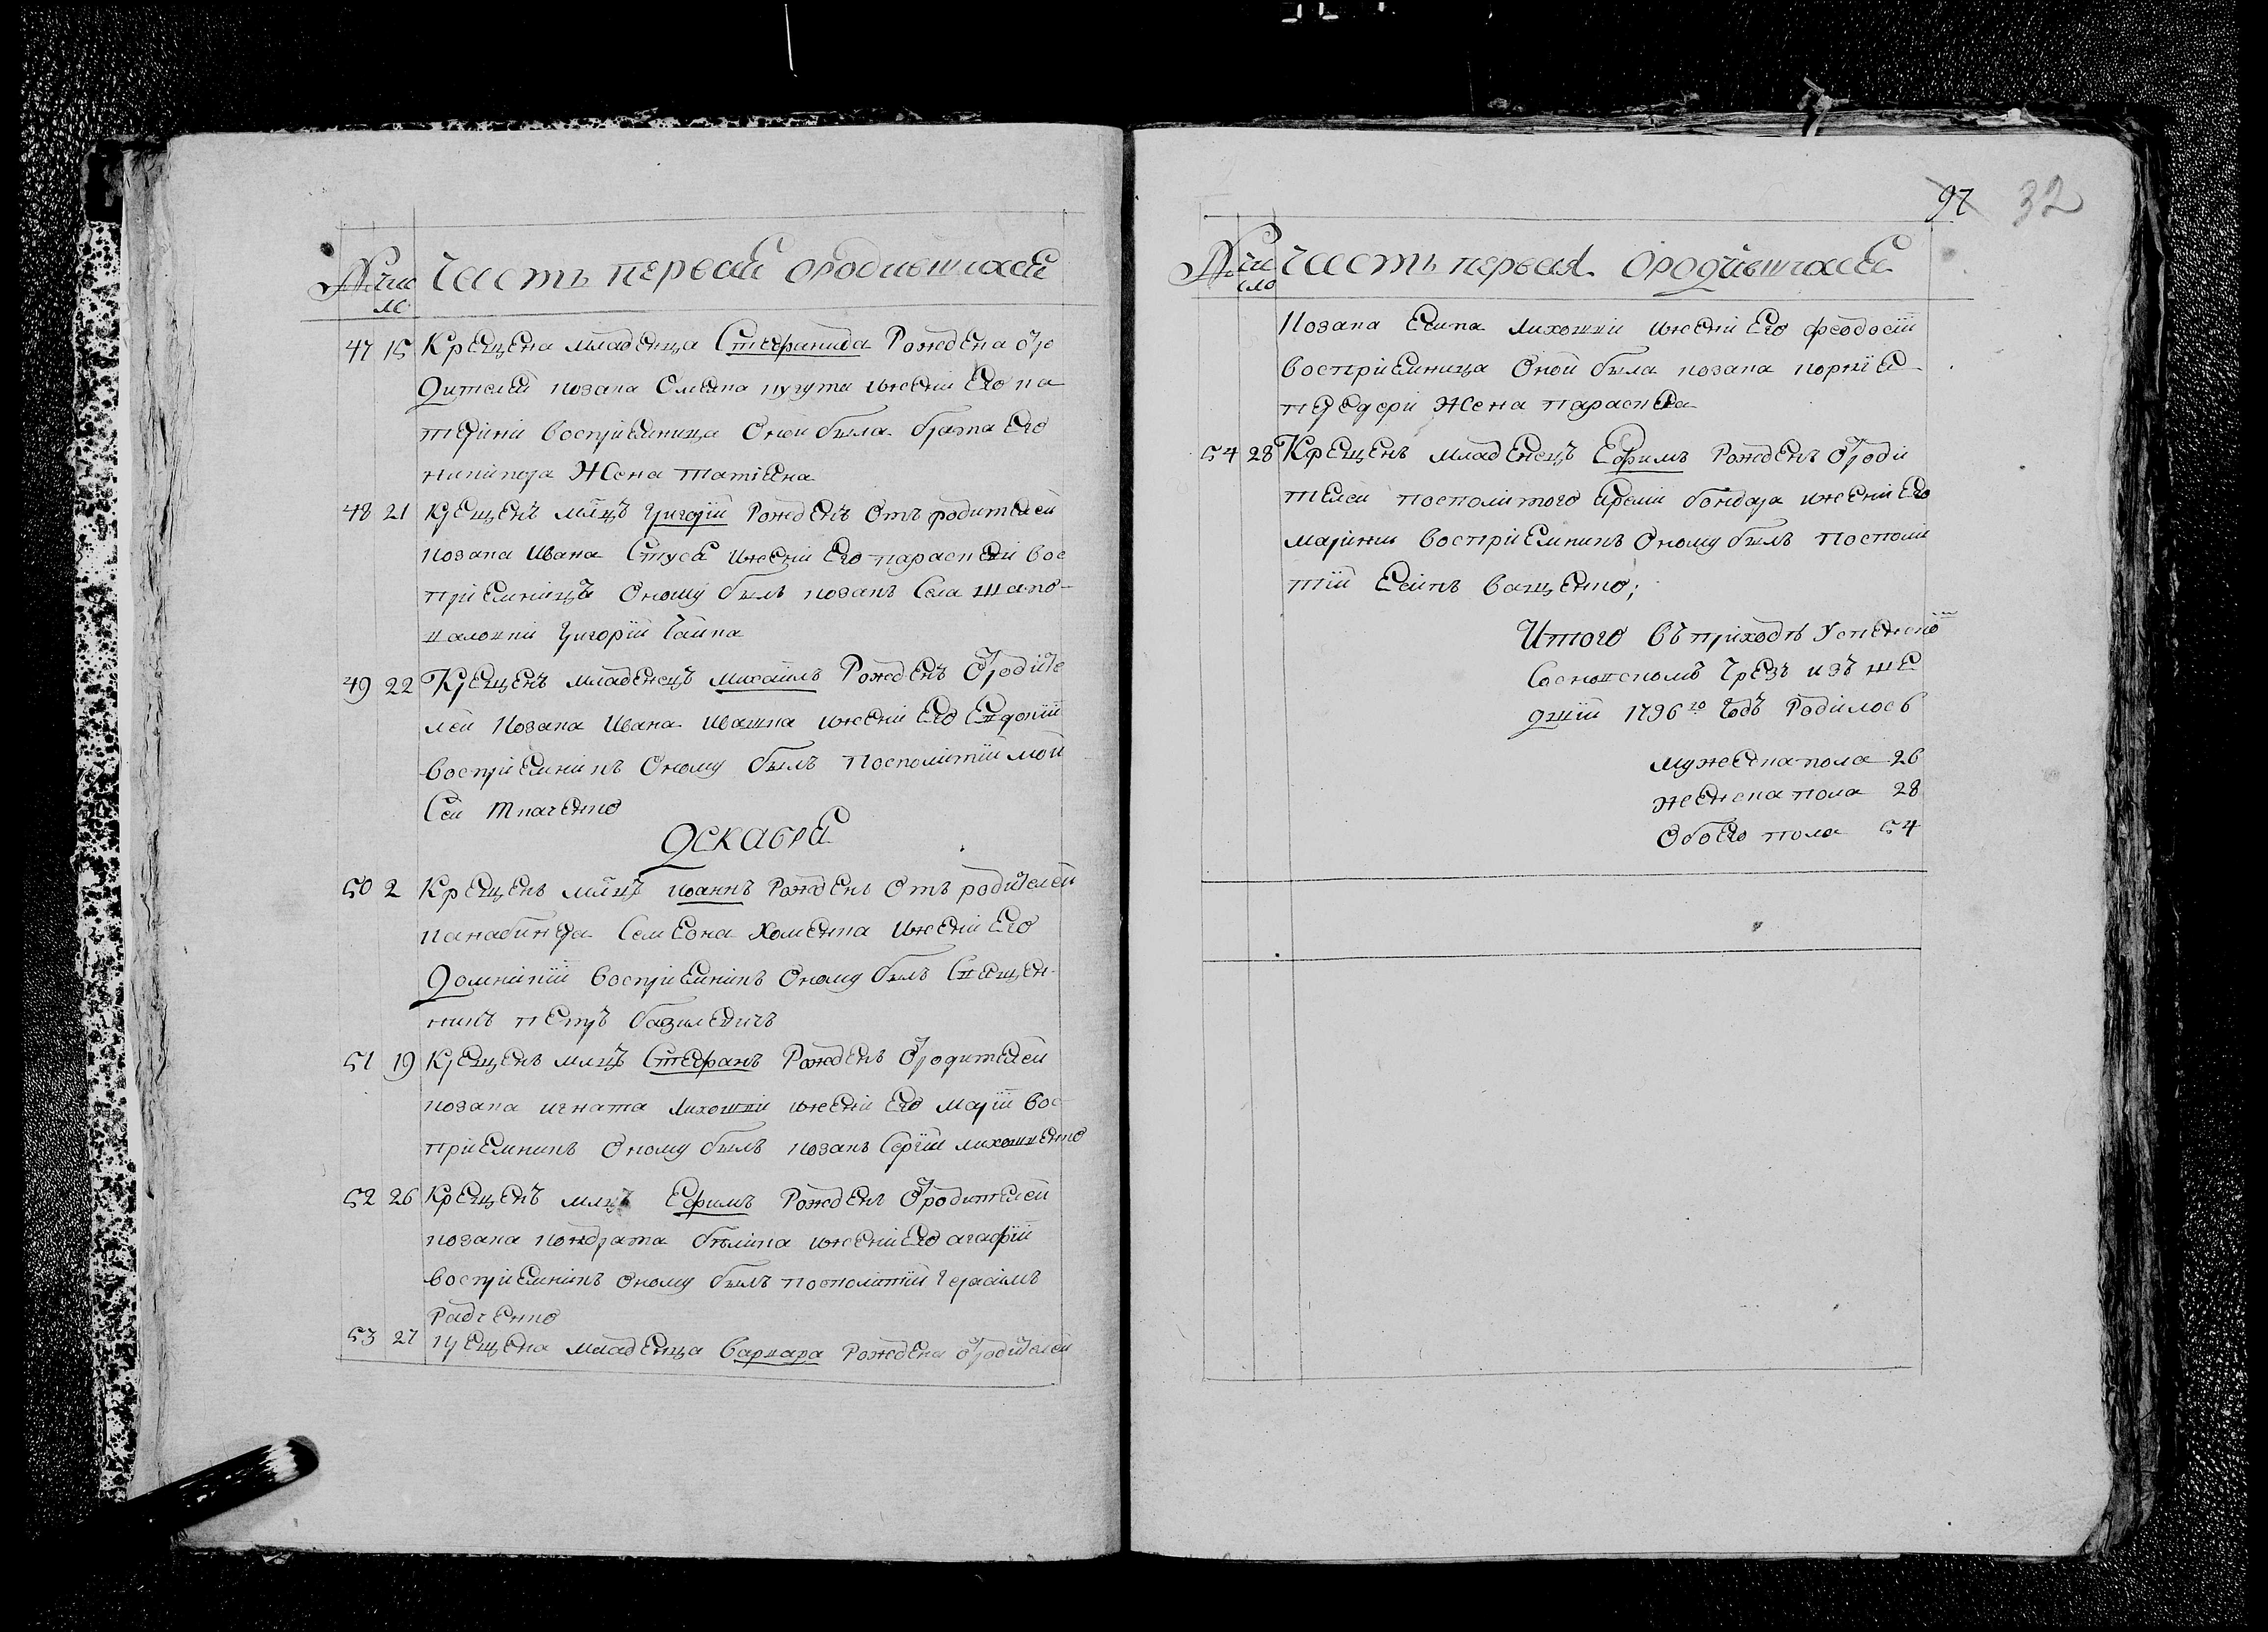 97 32
№ Чис
ло Часть первая ородившихся
47 15 Крещена младенца Стефанида Рождена ѿро
дителей козака Семена жени Его ка
терини восприемница Оной была брата Его
никифора Жена татиена
48 21 Крещенъ млнцъ Григорій Рожденъ Отъ родителей
козака Ивана Стуся ижени Его параскеви вос
приемницъ Оному былъ козакъ Села шапо-
валовки Григорій Чайка
49 22 Крещенъ младенецъ михаилъ Рожденъ ѿродите
лей Козака Ивана Ивашка ижени Его Евдокіи
восприемникъ Оному былъ Посполитій мой
Сей Ткаченко
Декабря
50 2 Крещенъ млнцъ иоаннъ Рожденъ Отъ родителей
канабинера Семеона Хоменка ижени Его
Домникіи восприемникъ Оному былъ Священ-
никъ петръ базилевичъ
51 19 Крещенъ млнцъ Стефанъ Рожденъ ѿродителей
козака игната Лихошви ижени Его маріи вос
приемникъ Оному былъ козакъ Сергій лихошвенко
52 26 Крещенъ млнцъ Ефимъ Рожденъ ѿродителей
козака кондрата бѣлика ижени Его агафіи
восприемникъ оному былъ посполитій герасимъ
Радченко
53 27 Крещена младенца варвара Рождена ѿродителей
№ Чи
сло Часть первая ородившихся
Козака Есипа Лихошви ижени Его феодосіи
восприемница Оной была козака корніе-
я Жена параскева
54 28 Крещенъ младенецъ Ефимъ Рожденъ ѿроди
телей посполитого Яремы бондаря ижени Его
марини восприемникъ Оному былъ Посполи
тій Есипъ ващенко;
Итого въ приходѣ Успенской
Сосно через изъ ше
дшій 1796го Годъ Родилось
мужеска пола 26
женска пола 28
Обоего пола 54